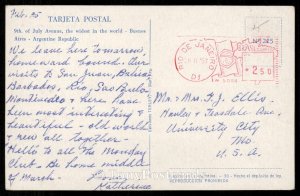 Feb. 25
TARJETA POSTAL
9th. of July Avenue, the widest in the world - Buenos
Aires - Argentine Republic
We leave here tomorrow,
homeward bound. Our
visits to San Juan,
Barbados, Rio, Sao Paulo
Montevideo & here have
been most interesting &
beautiful - old world &
new all together.
Hello to all the Monday
Club. Be home middle
of March.
Love
Katherine
RIO DE JANEIRO
D1
250
Mr. & Mrs. F. J. Ellis
Hanley & Teasdale Ave
University City
Mo
U. S. A.
REPRODUCCIÓN PROHIBIDA